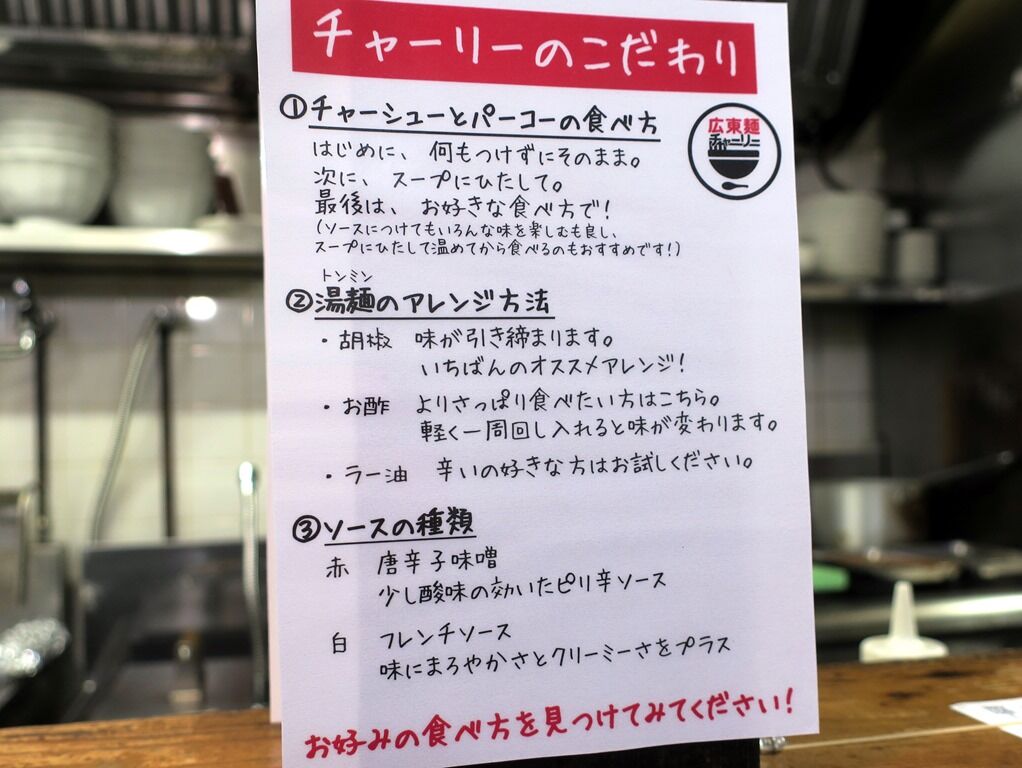 チャーリーのこだわり
①チャーシューとパーコーの食べ方
広東麺
チャーリー
はじめに、何もつけずにそのまま。
次に、スープにひたして。
最後は、お好きな食べ方で!
(ソースにつけてもいろんな味を楽しむも良し、
スープにひたして温めてから食べるのもおすすめです!)
トンミン
②湯麺のアレンジ方法
・胡椒 味が引き締まります。
いちばんのオススメアレンジ!
・お酢 よりさっぱり食べたい方はこちら。
軽く一周回し入れると味が変わります。
・ラー油 辛いの好きな方はお試しください。
③ソースの種類
赤 唐辛子味噌
少し酸味の効いたピリ辛ソース
白 フレンチソース
味にまろやかさとクリーミーさをプラス
お好みの食べ方を見つけてみてください!